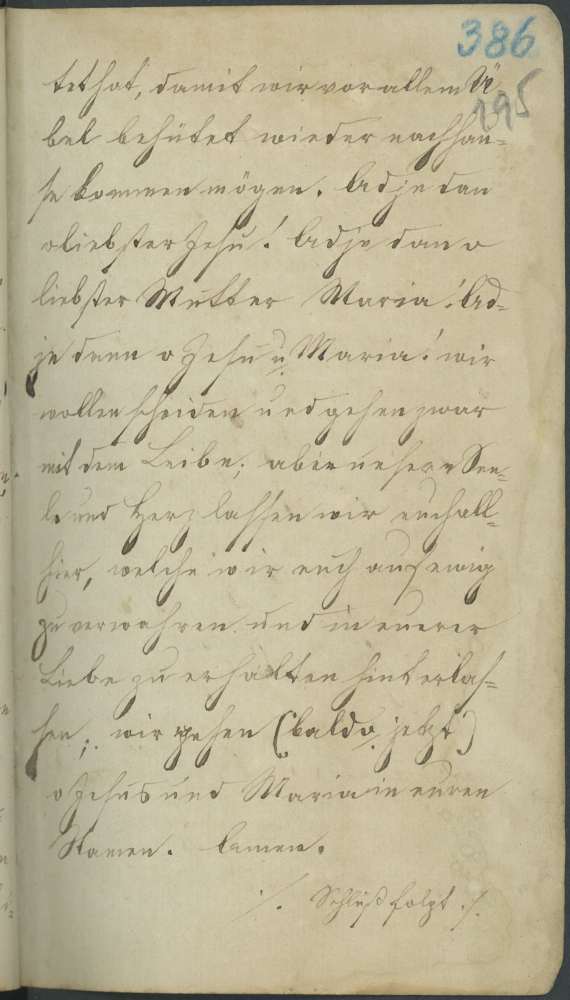 386
195
tet hat, damit wir vor allem Ü-
bel behütet wieder nach hau-
se kommen mögen. Adje dan
o liebster Jesu! Adje dan o
liebster Mutter Maria! Ad-
je denn o Jesu u Maria! wir
wollen scheiden und gehen zwar
mit dem Leibe; aber unsere See-
le und Herz lassen wir euch all-
hier, welche wir euch auf ewig
zu verwahren und in euerer
Liebe zu erhalten hinterlas-
sen; wir gehen (bald o. jetzt)
o Jesus und Maria in euren
Namen. Amen.
./. Schluß folgt ./.